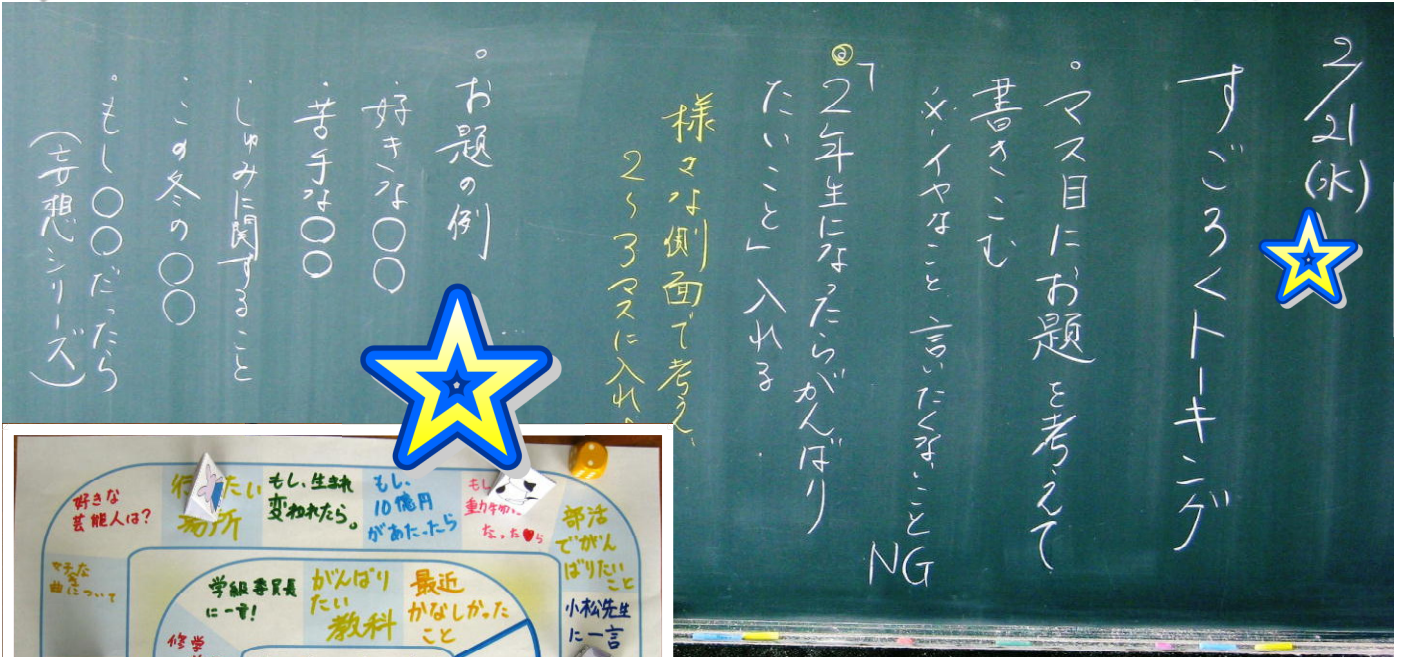 2/21(水)
すごろくトーキング
。マス目にお題を考えて
書きこむ
※イヤなこと言いたくないことNG
「2年生になったらがんばり
たいこと」入れる
様々な側面で考え、
2〜3マスに入れ
。お題の例
・好きな〇〇
・苦手な〇〇
・しゅみに関すること
・この冬の〇〇
・もし〇〇だったら
(妄想シリーズ)
好きな
芸能人は?
行 たい
場所
もし、生まれ
変われたら。
もし、
10億円
があたったら
もし
動物
なったら
部活
でがん
ばりたい
こと
好きな
曲について
学級委員長
に一言!
がんばり
たい
教科
最近
かなしかった
こと
小松先生
に一言
修学